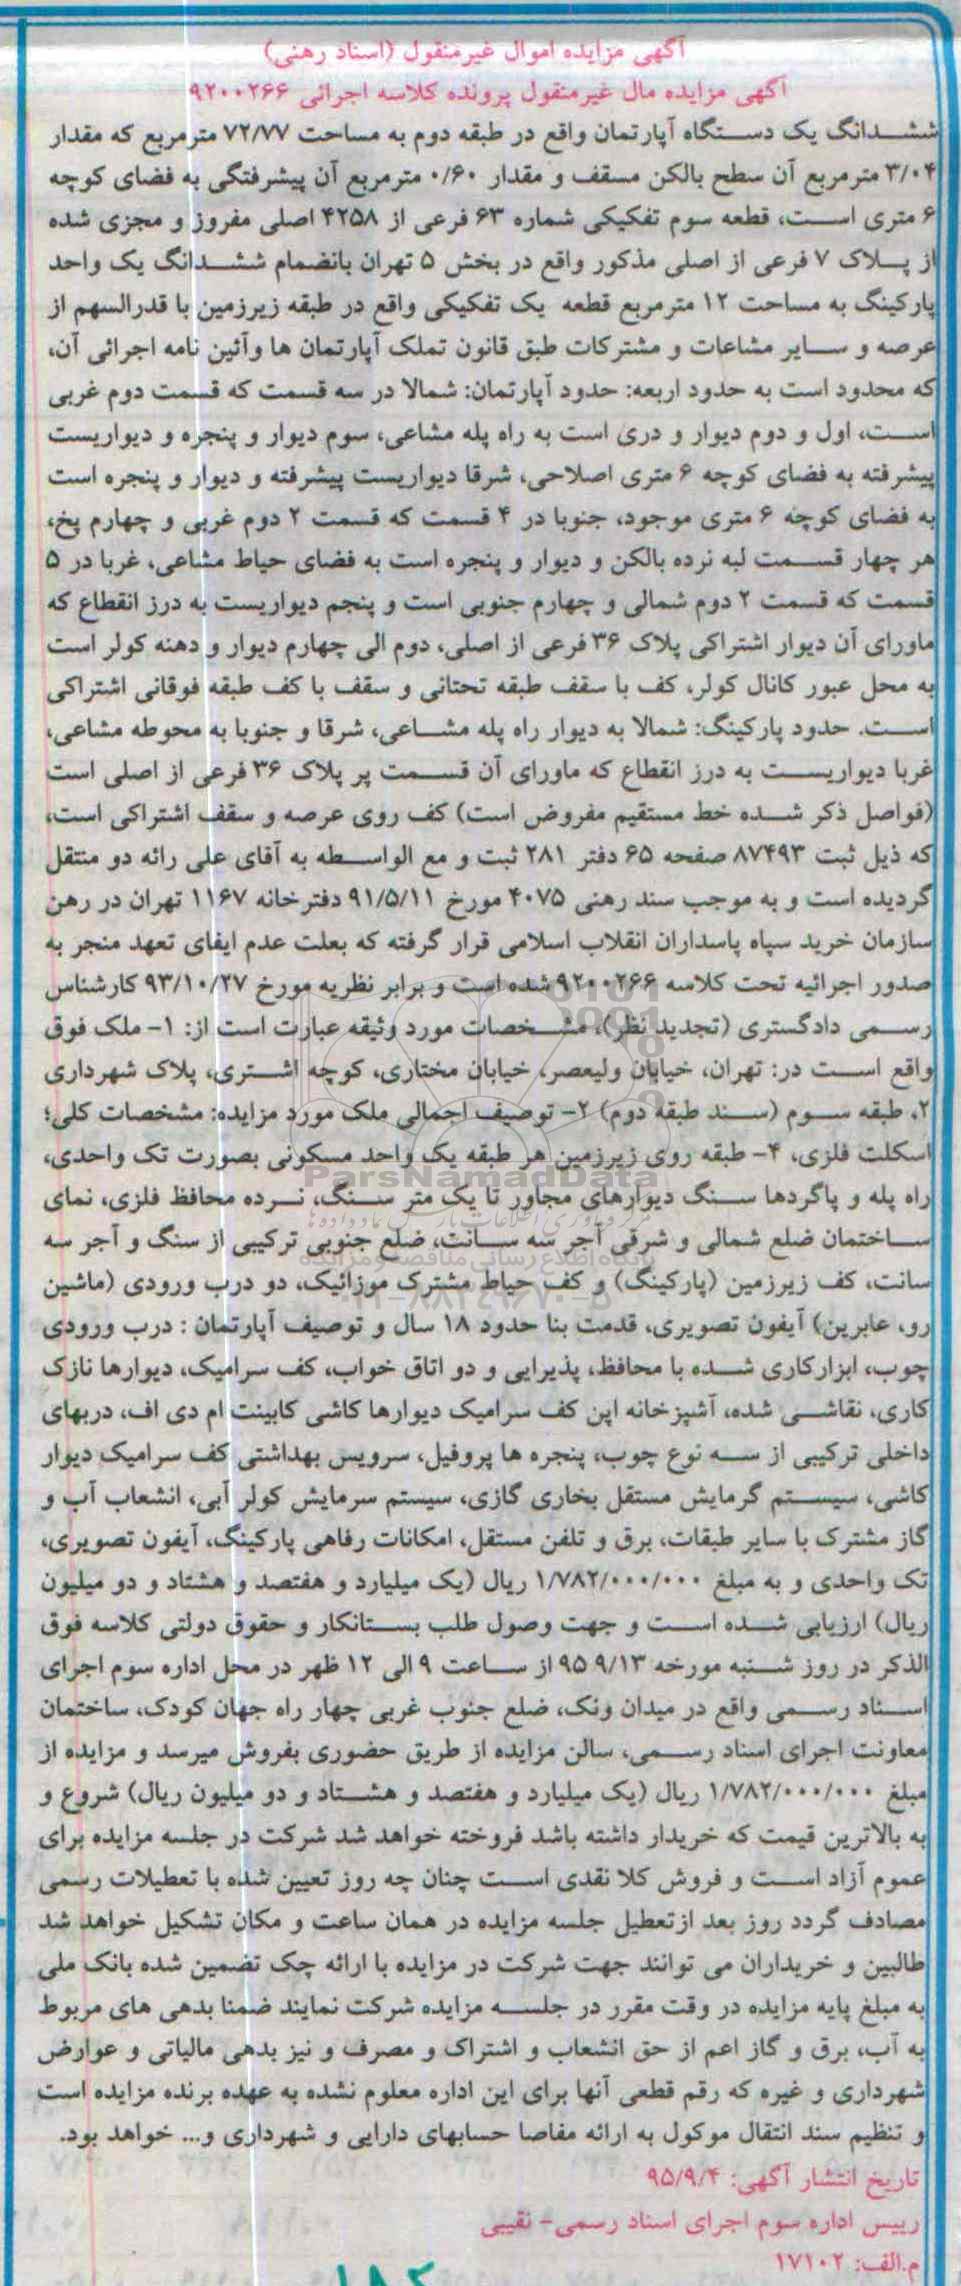 آگهی مزایده اموال غیرمنقول (اسناد رهنی)
آگهی مزایده مال غیرمنقول پرونده کلاسه اجرائی ۹۲۰۰۲۶۶
ششدانگ یک دستگاه آپارتمان واقع در طبقه دوم به مساحت ۷۲/۷۷ مترمربع که مقدار
۳/۰۴ مترمربع آن سطح بالکن مسقف و مقدار ۰/۶۰ مترمربع آن پیشرفتگی به فضای کوچه
۶ متری است، قطعه سوم تفکیکی شماره ۶۳ فرعی از ۴۲۵۸ اصلی مفروز و مجزی شده
از پلاک ۷ فرعی از اصلی مذکور واقع در بخش ۵ تهران بانضمام ششدانگ یک واحد
پارکینگ به مساحت ۱۲ مترمربع قطعه یک تفکیکی واقع در طبقه زیرزمین با قدرالسهم از
عرصه و سایر مشاعات و مشترکات طبق قانون تملک آپارتمان ها وآئین نامه اجرائی آن،
که محدود است به حدود اربعه: حدود آپارتمان: شمالا در سه قسمت که قسمت دوم غربی
است، اول و دوم دیوار و دری است به راه پله مشاعی، سوم دیوار و پنجره و دیواریست
پیشرفته به فضای کوچه ۶ متری اصلاحی، شرقا دیواریست پیشرفته و دیوار و پنجره است
به فضای کوچه ۶ متری موجود، جنوبا در ۴ قسمت که قسمت ۲ دوم غربی و چهارم پخ،
هر چهار قسمت لبه نرده بالکن و دیوار و پنجره است به فضای حیاط مشاعی، غربا در ۵
قسمت که قسمت ۲ دوم شمالی و چهارم جنوبی است و پنجم دیواریست به درز انقطاع که
ماورای آن دیوار اشتراکی پلاک ۳۶ فرعی از اصلی، دوم الی چهارم دیوار و دهنه کولر است
به محل عبور کانال کولر، کف با سقف طبقه تحتانی و سقف با کف طبقه فوقانی اشتراکی
است. حدود پارکینگ: شمالا به دیوار راه پله مشاعی، شرقا و جنوبا به محوطه مشاعی،
غربا دیواریست به درز انقطاع که ماورای آن قسمت پر پلاک ۳۶ فرعی از اصلی است
(فواصل ذکر شده خط مستقیم مفروض است) کف روی عرصه و سقف اشتراکی است،
که ذیل ثبت ۸۷۴۹۳ صفحه ۶۵ دفتر ۲۸۱ ثبت و مع الواسطه به آقای علی رائه دو منتقل
گردیده است و به موجب سند رهنی ۴۰۷۵ مورخ ۹۱/۵/۱۱ دفترخانه ۱۱۶۷ تهران در رهن
سازمان خرید سپاه پاسداران انقلاب اسلامی قرار گرفته که بعلت عدم ایفای تعهد منجر به
صدور اجرائیه تحت کلاسه ۹۲۰۰۲۶۶ شده است و برابر نظریه مورخ ۹۳/۱۰/۲۷ کارشناس
رسمی دادگستری (تجدید نظر)، مشخصات مورد وثیقه عبارت است از: ۱- ملک فوق
واقع است در: تهران، خیابان ولیعصر، خیابان مختاری، کوچه اشتری، پلاک شهرداری
۲، طبقه سوم (سند طبقه دوم) ۲- توصیف اجمالی ملک مورد مزایده: مشخصات کلی؛
اسکلت فلزی، ۴- طبقه روی زیرزمین هر طبقه یک واحد مسکونی بصورت تک واحدی،
ParsNamadData
راه پله و پاگردها سنگ دیوارهای مجاور تا یک متر سنگ، نرده محافظ فلزی، نمای
ساختمان ضلع شمالی و شرقی آجر سه سانت، ضلع جنوبی ترکیبی از سنگ و آجر سه
پایگاه اطلاع رسانی مناقصه و مزایده
سانت، کف زیرزمین (پارکینگ) و کف حیاط مشترک موزائیک، دو درب ورودی (ماشین
۰۲۱-۸۸۳۴۹۶۷۰-۵
رو، عابرین) آیفون تصویری، قدمت بنا حدود ۱۸ سال و توصیف آپارتمان : درب ورودی
چوب، ابزارکاری شده با محافظ، پذیرایی و دو اتاق خواب، کف سرامیک، دیوارها نازک
کاری، نقاشی شده، آشپزخانه اپن کف سرامیک دیوارها کاشی کابینت ام دی اف، دربهای
داخلی ترکیبی از سه نوع چوب، پنجره ها پروفیل، سرویس بهداشتی کف سرامیک دیوار
کاشی، سیستم گرمایش مستقل بخاری گازی، سیستم سرمایش کولر آبی، انشعاب آب و
گاز مشترک با سایر طبقات، برق و تلفن مستقل، امکانات رفاهی پارکینگ، آیفون تصویری،
تک واحدی و به مبلغ ۱/۷۸۲/۰۰۰/۰۰۰ ریال (یک میلیارد و هفتصد و هشتاد و دو میلیون
ریال) ارزیابی شده است و جهت وصول طلب بستانکار و حقوق دولتی کلاسه فوق
الذکر در روز شنبه مورخه ۹۵ ۹/۱۳ از ساعت ۹ الی ۱۲ ظهر در محل اداره سوم اجرای
اسناد رسمی واقع در میدان ونک، ضلع جنوب غربی چهار راه جهان کودک، ساختمان
معاونت اجرای اسناد رسمی، سالن مزایده از طریق حضوری بفروش میرسد و مزایده از
مبلغ ۱/۷۸۲/۰۰۰/۰۰۰ ریال (یک میلیارد و هفتصد و هشتاد و دو میلیون ریال) شروع و
به بالاترین قیمت که خریدار داشته باشد فروخته خواهد شد شرکت در جلسه مزایده برای
عموم آزاد است و فروش کلا نقدی است چنان چه روز تعیین شده با تعطیلات رسمی
مصادف گردد روز بعد ازتعطیل جلسه مزایده در همان ساعت و مکان تشکیل خواهد شد
طالبین و خریداران می توانند جهت شرکت در مزایده با ارائه چک تضمین شده بانک ملی
به مبلغ پایه مزایده در وقت مقرر در جلسه مزایده شرکت نمایند ضمنا بدهی های مربوط
به آب، برق و گاز اعم از حق انشعاب و اشتراک و مصرف و نیز بدهی مالیاتی و عوارض
شهرداری و غیره که رقم قطعی آنها برای این اداره معلوم نشده به عهده برنده مزایده است
و تنظیم سند انتقال موکول به ارائه مفاصا حسابهای دارایی و شهرداری و... خواهد بود.
تاریخ انتشار آگهی: ۹۵/۹/۴
رییس اداره سوم اجرای اسناد رسمی- نقیبی
م.الف: ۱۷۱۰۲